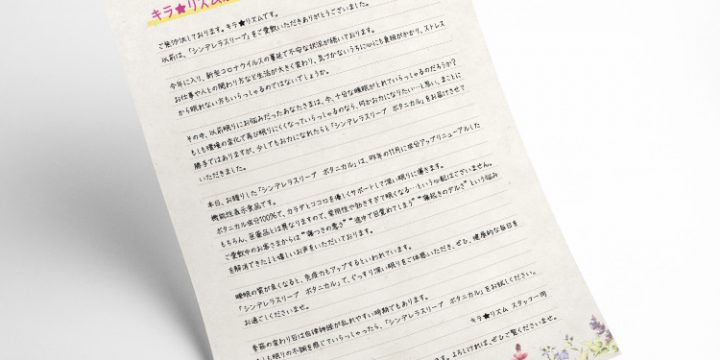 キラ★リズム
ご無沙汰しております。キラ★リズムです。
以前は、「シンデレラスリープ」をご愛飲いただきありがとうございました。
今年に入り、新型コロナウイルスの蔓延で不安な状況が続いております。
お仕事や人との関わり方など生活が大きく変わり、気づかないうちに心にも負担がかかり、ストレス
から眠れない方もいらっしゃるのではないでしょうか。
その中、以前眠りにお悩みだったあなたさまは、今、十分な睡眠がとれていらっしゃるのだろうか?
もしも環境の変化で再び眠りにくくなっていらっしゃるのなら、何かお力になりたい…と思い、まことに
勝手ではありますが、少しでもお力になれたらと「シンデレラスリープ ボタニカル」をお届けさせて
いただきました。
本日、お贈りした「シンデレラスリープ ボタニカル」は、昨年の11月に成分アップリニューアルした
機能性表示食品です。
ボタニカル成分100%で、カラダとココロを優しくサポートして深い眠りに導きます。
もちろん、医薬品とは異なりますので、常用性や効きすぎて眠くなる…という心配はございません。
ご愛飲中のお客さまからは“寝つきの悪さ”“途中で目覚めてしまう”“寝起きのダルさ”という悩み
を解消できた!と嬉しいお声をいただいております。
睡眠の質が良くなると、免疫力もアップするといわれています。
「シンデレラスリープ ボタニカル」で、ぐっすり深い眠りをご体感いただき、ぜひ、健康的な毎日を
お過ごしくださいませ。
季節の変わり目は自律神経が乱れやすい時期でもあります。
もしも眠りの不調を感じていらっしゃったら、「シンデレラスリープ ボタニカル」をお試しください。
キラ★リズム スタッフ一同
よろしければ、ぜひご覧くださいませ。